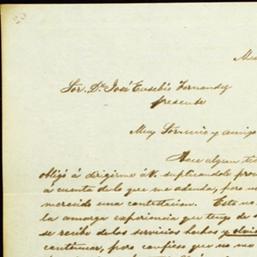 Sor. Dn. José Eusebio Fernandez
presente
Muy Sor. mio y amigo
Hace algun
obligó á dirigirme á V. suplicandole
á cuenta de lo que me adeuda, pero
merecido una contestacion. Esta
la amarga experiencia que tengo de
se recibe de los servicios hechos y
continuar, pero confieso que no me